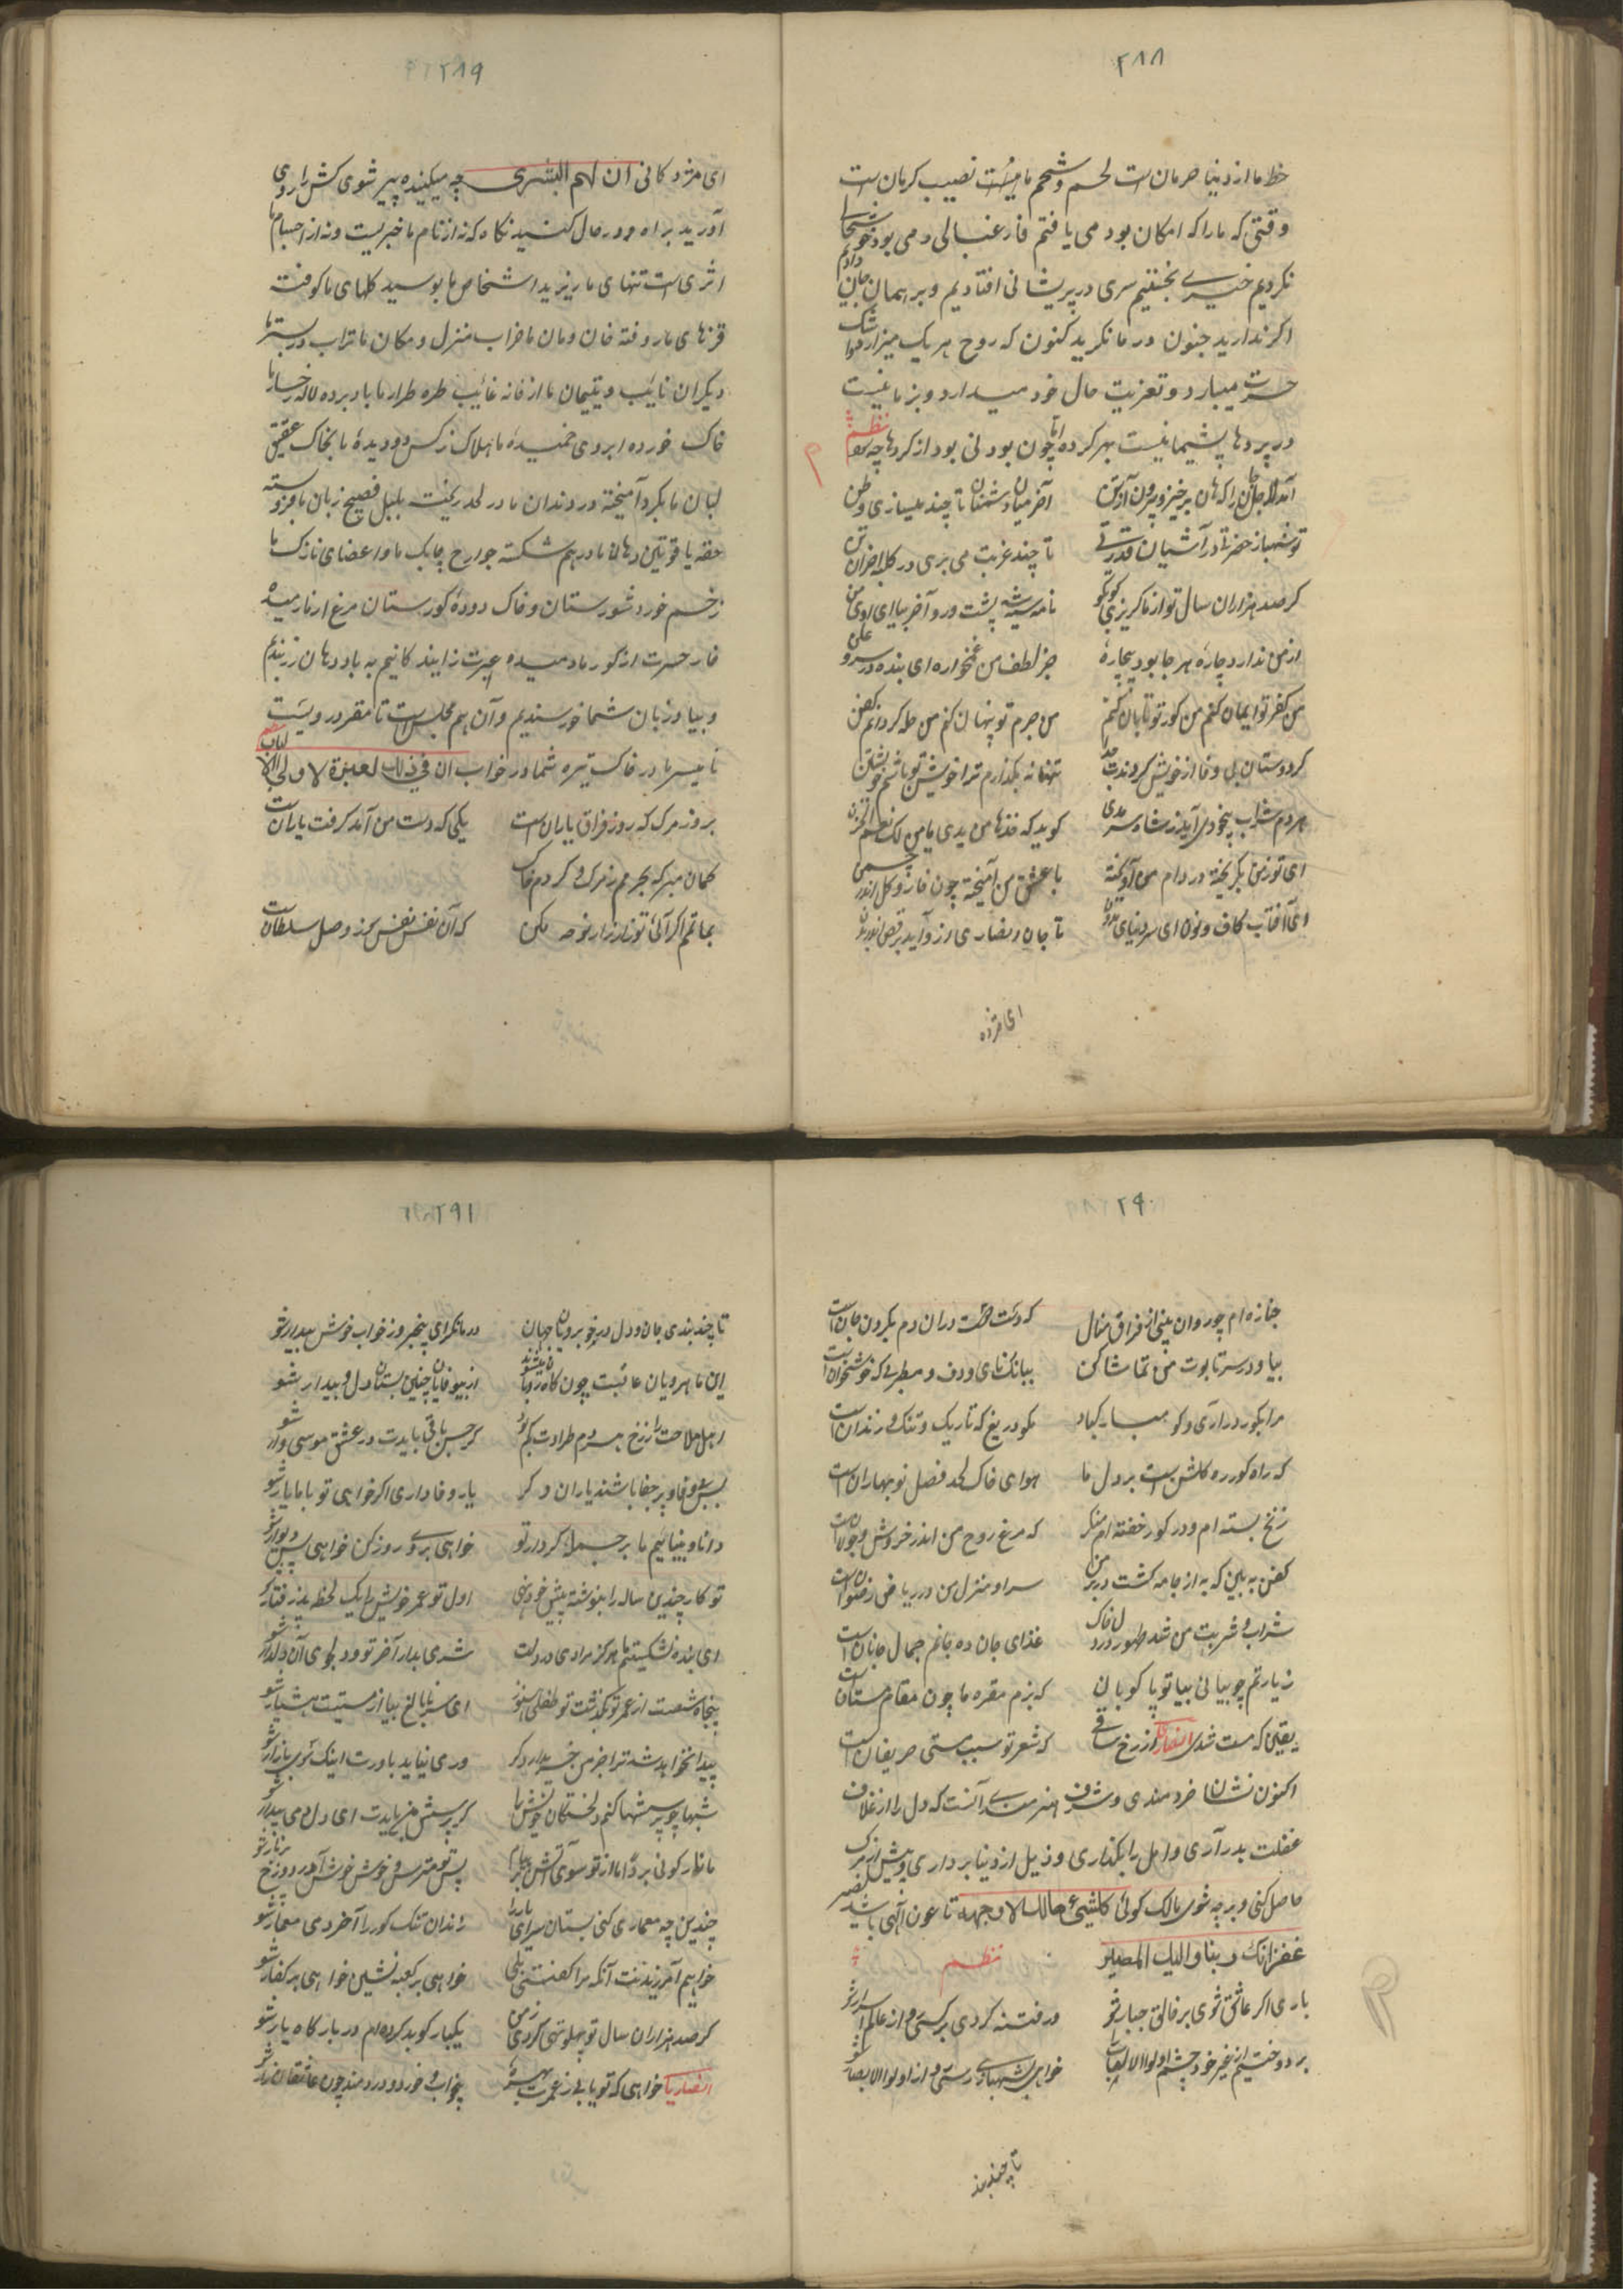 ۲۸۸
حظ ما از دنیا حرمان است لحم و شحم ما نیست نصیب کرمان است
وقتی که ما را که امکان بود می یافتیم فارغبالی و می بود خوشحالی
نکردیم خیری نجنبیدیم سری در پریشانی افتادیم و بر ایمان جان دادیم
اکر ندارید جنون در ما نکرید کنون که روح هر یک میزارد اشک
حسرت میبارد و تعزیت حال خود میدارد و بر ما نیست
در پردها پشیمانیست بهر کرده اما چون بودنی بود از کردها چه سود نظم
آمد ندا جان را که هان برخیز و بیرون آ ز تن آخر میان دشمنان تا چند میسازی وطن
تو شهباز حضرتی در آشیان قدرتی تا چند غربت می بری در کلبه احزان تن
کر صد هزاران سال تو از ما کریزی کو بکو نامه سیه پشت دو رو آخر بیا ای سوی من
از من ندارد چاره هر جا بود بیچاره جز لطف من غمخواره ای بنده در سر و علن
من کفر تو ایمان کنم من کور تو تابان کنم من جرم تو پنهان کنم من حله کردانم کفن
کر دوستان بی وفا از خویش کردندت جدا تنها نه بکذارم ترا خویش تو باشم خویشتن
هر دم شراب بیخودی آید ز شاه سرمدی کوید که خذها من یدی یا من لک نعم الحزن
ای تو ز من بکریخته در دام من آویخته با عشق من آمیخته چون خار و کل اندر چمن
ای آفتاب کاف و نون ای سر دنیای بدون تا جان انصاری ز زو آید برقص اندر بدن
ای مژده
۲۸۹
ای مژدکانی ان لهم البشری چه میکنید پیر شوی کش را روی
آورید براه و در حال کنید نکاه که نه از نام ما خبریست و نه از اجسام ما
اثری است تنهای ما ریزید اشخاص ما بوسید کلهای ما کوفت
قرنهای ما روفته خان و مان ما خراب منزل و مکان ما تراب در بسترها
دیکران نایب و یتیمان ما از خانه غایب طره طرار ما باد برده لاله رخسار ما
خاک خورده ابروی خمیده ما هلاک نرکس دو دیده ما بخاک عقیق
لبان ما بکرد آمیخته در دندان ما در لحد ریخت بلبل فصیح زبان ما فرو بسته
حقه یاقوتین دهان ما درهم شکسته جوارح چابک ما و اعضای نازک ما
زخم خورد شورستان و خاک دوده کورستان مرغ از خار میده
خار حسرت از کور ما دمیده عبرت زایند کانیم به باد دهان زرنیم
و بیاد زبان شما خورسندیم و آن هم مجلس است تا مقر درویست
نایسر ما در خاک تیره شما در خواب ان فی ذلک لعبرة لاولی الالباب نظم
بروز مرک که روز فراق یاران است یکی که دست من آمد کرفت یاران است
کمان مبر که بجرمم ز مرک و کردم خاک که آن نفس نفس بزم وصل سلطان است
بماتم اکر آئی تو زار زار نوحه مکن
۲۹۰
جنازه ام چو روان بینی از فراق منال که دست دست دران دم بکردن جان است
بیا و در سر تابوت من تماشا کن ببانک نای و دف و مطربی که خوشخوان است
مرا بکور درآری و کو مبارکباد مکو دریغ که تاریک و تنک و زندان است
که راه کور ره کلشن است بر دل ما هوای خاک لحد فصل نوبهاران است
زنخ بسته ام و در کور خفته ام منکر که مرغ روح من اندر خروش و جولان است
کفن به بین که به از جامه کشت در بر من سرا و منزل من در ریاض رضوان است
شراب و شربت من شد طهور در دل خاک غذای جان ده جانم جمال جانان است
زیارتم چو بیائی بیا تو پا کوبان که بزم مقبره ما چون مقام مستان است
یقین که مست شدی انصاریا از رخ ساقی که شعر تو سبب مستی حریفان است
اکنون نشان خردمندی و شرف هنرمندی آنست که دل را از غلاف
غفلت بدر آری و امل را بکذاری و ذیل از دنیا برداری و پیش از مرک
حاصل کنی و بر چه شوی مالک کوئی کلشیء هالک الا وجهه تا عون الهی باشد نصیر
غفرانک ربنا والیک المصیر نظم
باری اکر عاشق شوی بر خالق جبار شو ور فتنه کردی بر کسی و از عالم اسرار شو
بر دوختیم از غیر خود چشم اولوالالباب خواهی شهیدی رستی و از اولوالابصار شو
تا چند بند
۲۹۱
تا چند بندی جان و دل در خوبرویان جهان در ما نکر ای بیخبر وز خواب خوش بیدار شو
این ماهرویان عاقبت چون کاه رویان میشوند از بیوفایان چنین بستان دل و بیدار شو
اهل ملاحت را ز رخ هر دم طراوت کم شود کر حسن باقی بایدت در عشق موسی وار شو
بس بی وفا و پر جفا باشند یاران دکر یار وفاداری اکر خواهی تو با ما یار شو
دانا و بینائیم ما بر جمله کردار تو خواهی برو روزکن خواهی پس دیوار شو
تو کار چندین ساله را بنوشته پیش خود بنه اول تو عمر خویش را یک لحظه پذیرفتار شو
ای بنده نشکستیم ما هرکز مرادی در دلت شرمی بدار آخر تو و دلجوی آن دلدار شو
پنجاه شصت از عمر تو بکذشت تو طفلی هنوز ای سر نابالغ بیا از مستیت هشیار شو
پیدا نخواهد شد ترا جز من خریدار دکر ور می نیاید باورت اینک سوی بازار شو
شبها چو پرسشها کنم دلخستکان خویش را کر پرسش من بایدت ای دل دمی بیدار شو
ما نار کونی بردا ما از تو سوی آتش بریم پس تو مترس و خوش خوش آ در دوزخ پر نار شو
چندین چه معماری کنی بستان سرای یار را زندان تنک کور را آخر دمی معمار شو
خواهیم آمرزیدنت آنکه برا کفتنی بلی خواهی بر کعبه نشین خواهی بر کفار شو
کر صد هزاران سال تو پهلو تهی کردی ز من یکبار کو بد کرده ام در بارکاه یار شو
انصاریا خواهی که تو یابی ز عمرت بهره بیخواب و خور دو دردمند چون عاشقان زار شو